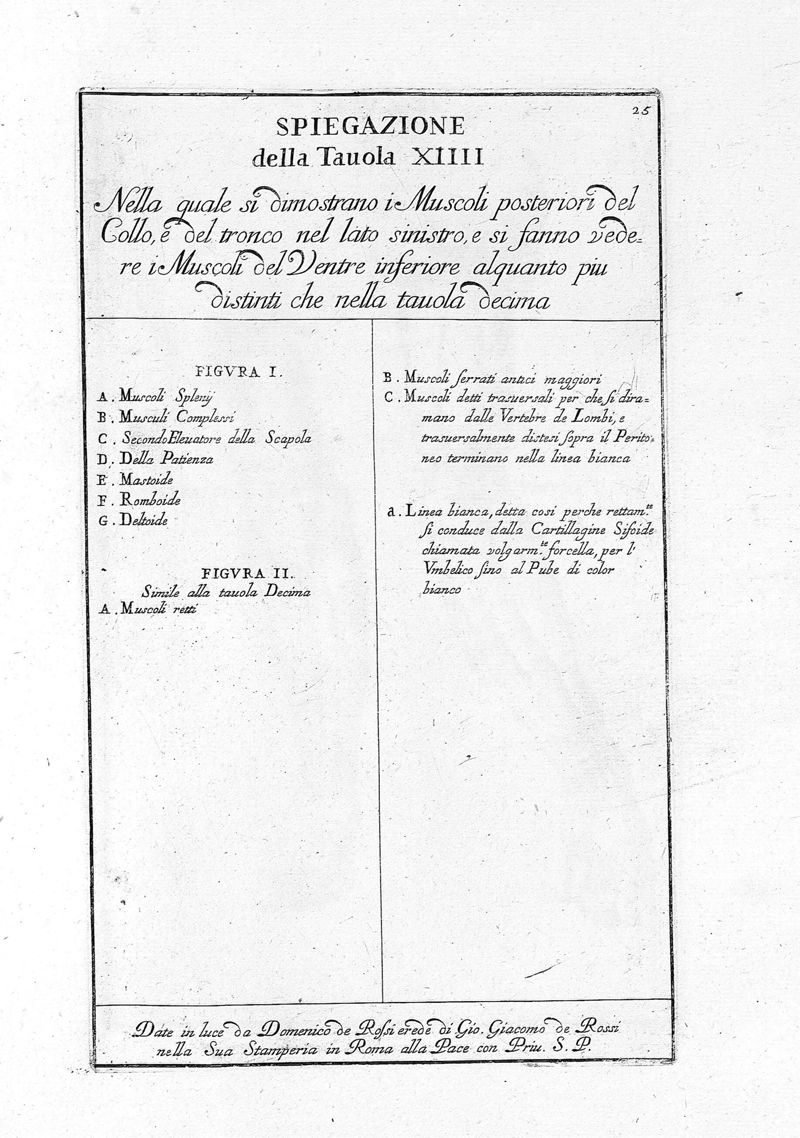 25
SPIEGAZIONE
della Tauola XIIII
Nella quale si dimostrano i Muscoli posteriori del
Collo, e del tronco nel lato sinistro, e si fanno vede=
re i Muscoli del Ventre inferiore alquanto piu
distinti che nella tauola decima
FIGVRA I.
A. Muscoli Splenij
B. Musculi Complessi
C. Secondo Eleuatore della Scapola
D. Della Patienza
E. Mastoide
F. Romboide
G. Deltoide
FIGVRA II.
Simile alla tauola Decima
A. Muscoli retti
B. Muscoli ſerrati antici maggiori
C. Muscoli detti trasuersali per che ſi dira=
mano dalle Vertebre de Lombi, e
trasuersalmente distesi ſopra il Perito=
neo terminano nella linea bianca
a. Linea bianca, detta cosi perche rettam.te
ſi conduce dalla Cartillagine Sifoide
chiamata volgarm.te forcella, per l'
Vmbelico ſino al Pube di color
bianco
Date in luce da Domenico de Roſsi erede di Gio. Giacomo de Rossi
nella Sua Stamperia in Roma alla Pace con Priu. S. P.